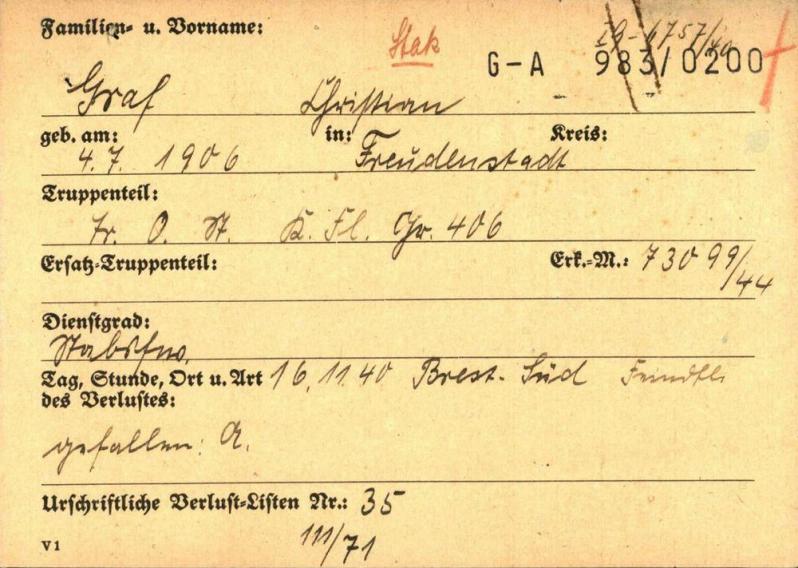 Familien- u. Vorname:
Stak
29-6757/40
G-A 983/0200
Graf Christian
geb. am: in: Kreis:
4.7. 1906 Freudenstadt
Truppenteil:
Fr. O. St. K. Fl. Gr. 406
Ersatz-Truppenteil: Erk.-M.: 73099/44
Dienstgrad:
Stabsfw.
Tag, Stunde, Ort u. Art 16.11.40 Brest-Süd Feindfl.
des Verlustes:
gefallen: A.
Urschriftliche Verlust-Listen Nr.: 35
V1
111/71